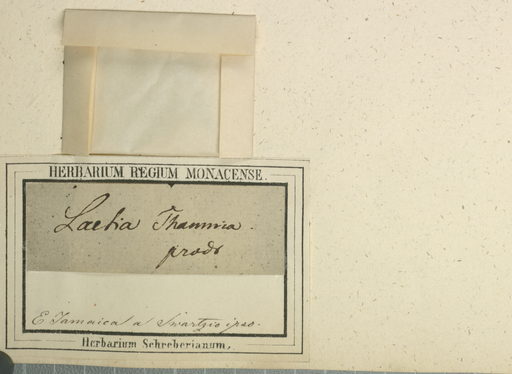 HERBARIUM REGIUM MONACENSE.
Laetia Thamnia.
prodr
E Jamaica a Swartzio ipso.
Herbarium Schreberianum.